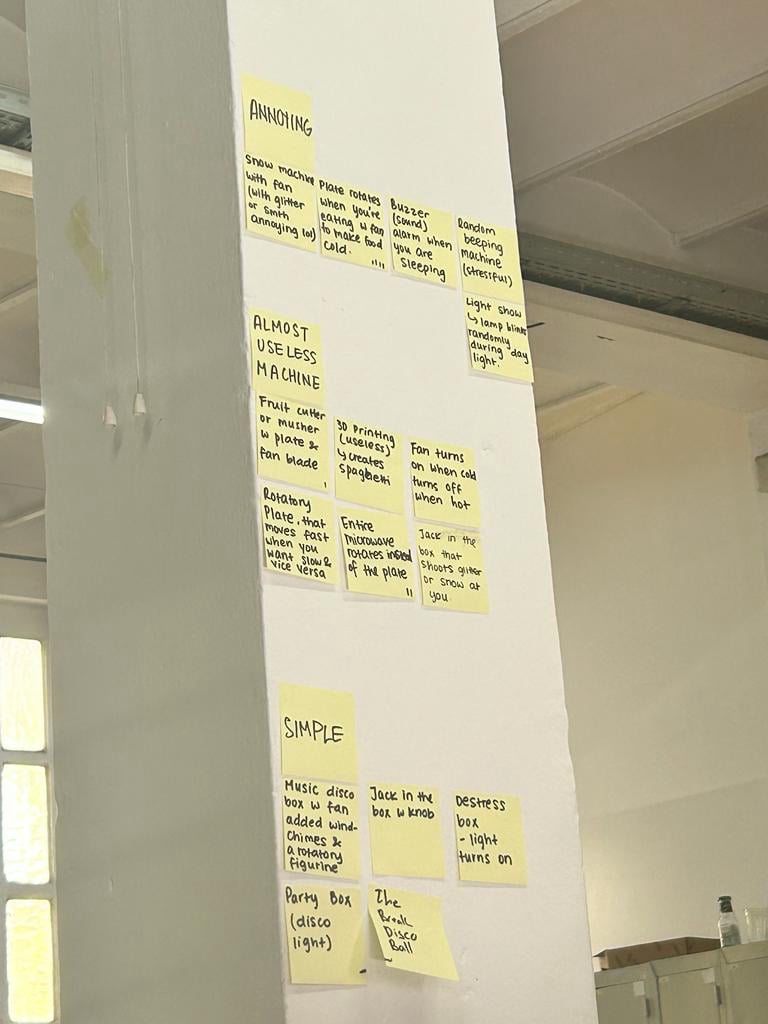 ANNOYING
Snow machine
with fan
(with glitter
or smth
annoying lol)
Plate rotates
when you're
eating w fan
to make food
cold.
IIII
Buzzer
(sound)
alarm when
you are
sleeping
Random
beeping
machine
(stressful)
Light show
↳ lamp blinks
randomly
during day
light.
ALMOST
USELESS
MACHINE
Fruit cutter
or musher
w plate &
fan blade
I
3D Printing
(useless)
↳ creates
spaghetti
Fan turns
on when cold
turns off
when hot
Rotatory
Plate, that
moves fast
when you
want slow &
vice versa
Entire
microwave
rotates instead
of the plate
II
Jack in the
box that
shoots glitter
or snow at
you.
SIMPLE
Music disco
box w fan
added wind-
chimes &
a rotatory
figurine
Jack in the
box w knob
Destress
box
- light
turns on
Party Box
(disco
light)
The
Break
Disco
Ball